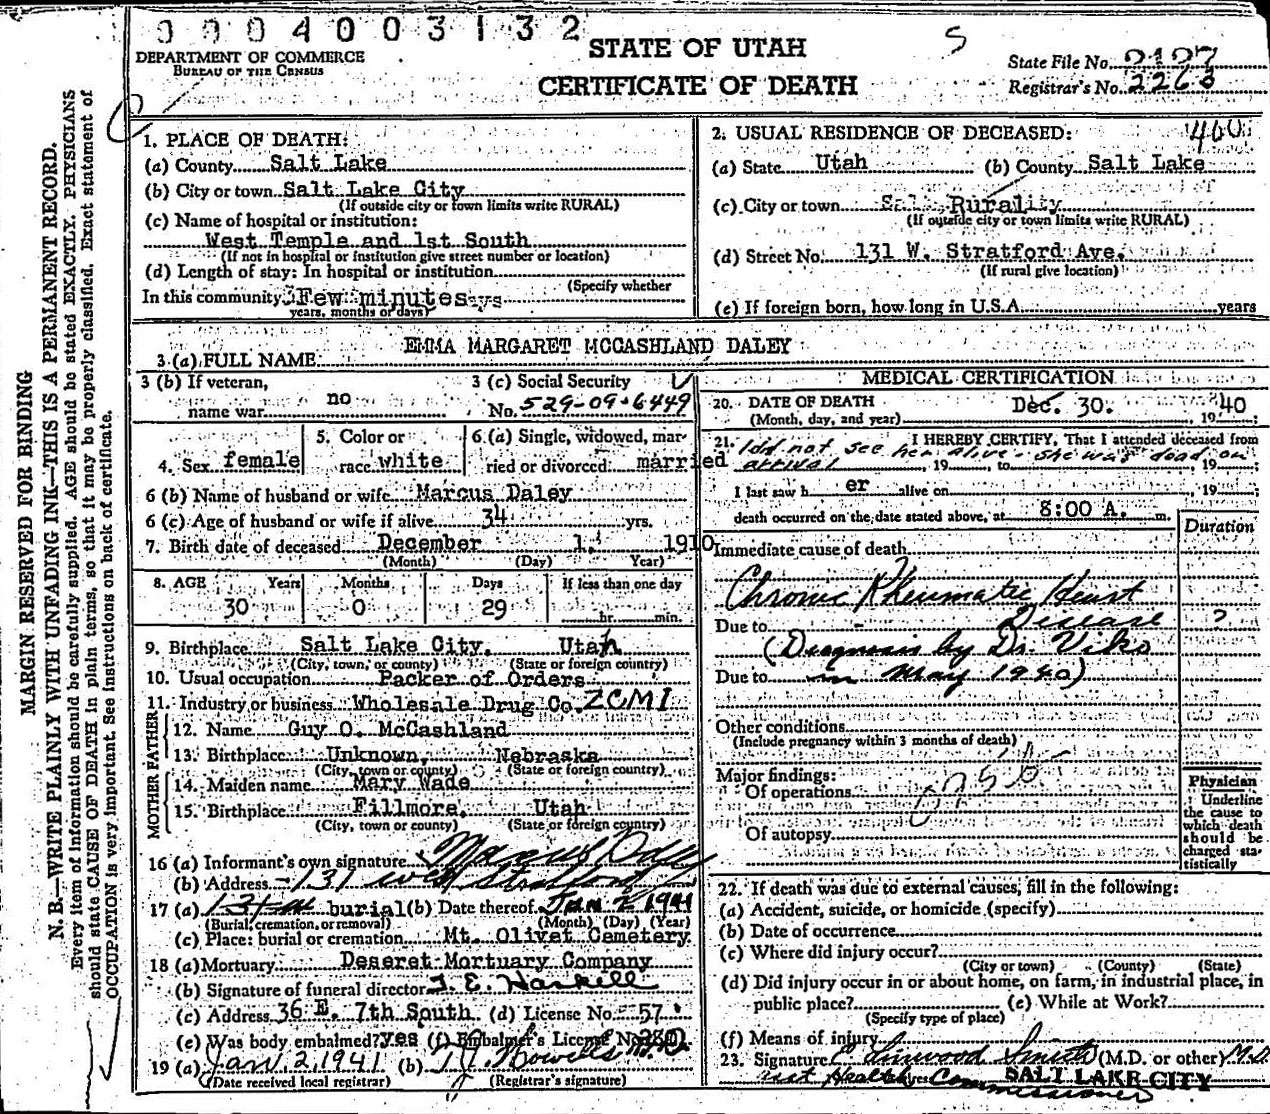 0004003132
DEPARTMENT OF COMMERCE
BUREAU OF THE CENSUS
STATE OF UTAH
CERTIFICATE OF DEATH
S
State File No. 2127
Registrar's No. 2263
MARGIN RESERVED FOR BINDING
N. B.—WRITE PLAINLY WITH UNFADING INK—THIS IS A PERMANENT RECORD.
Every item of information should be carefully supplied. AGE should be stated EXACTLY. PHYSICIANS
should state CAUSE OF DEATH in plain terms, so that it may be properly classified. Exact statement of
OCCUPATION is very important. See instructions on back of certificate.
1. PLACE OF DEATH:
(a) County Salt Lake
(b) City or town Salt Lake City
(If outside city or town limits write RURAL)
(c) Name of hospital or institution:
West Temple and 1st South
(If not in hospital or institution give street number or location)
(d) Length of stay: In hospital or institution
(Specify whether
In this community Few minutes
years, months or days)
2. USUAL RESIDENCE OF DECEASED:
(a) State Utah (b) County Salt Lake
(c) City or town Rural
(If outside city or town limits write RURAL)
(d) Street No. 131 W. Stratford Ave.
(If rural give location)
(e) If foreign born, how long in U.S.A. years
3 (a) FULL NAME EMMA MARGARET MCCASHLAND DALEY
3 (b) If veteran,
name war no
3 (c) Social Security
No. 529-09-6449
4. Sex female
5. Color or
race white
6 (a) Single, widowed, mar-
ried or divorced married
6 (b) Name of husband or wife Marcus Daley
6 (c) Age of husband or wife if alive 34 yrs.
7. Birth date of deceased December 1, 1910
(Month) (Day) Year)
8. AGE Years Months Days If less than one day
30 0 29 hr. min.
9. Birthplace Salt Lake City, Utah
(City, town, or county) (State or foreign country)
10. Usual occupation Packer of Orders
11. Industry or business Wholesale Drug Co. ZCMI
FATHER
12. Name Guy O. McCashland
13. Birthplace Unknown, Nebraska
(City, town or county) (State or foreign country)
MOTHER
14. Maiden name Mary Wade
15. Birthplace Fillmore, Utah
(City, town or county) (State or foreign country)
16 (a) Informant's own signature Marcus Daley
(b) Address 131 West Stratford
17 (a) burial (b) Date thereof Jan 2 1941
(Burial, cremation, or removal) (Month) (Day) (Year)
(c) Place: burial or cremation Mt. Olivet Cemetery
18 (a) Mortuary Deseret Mortuary Company
(b) Signature of funeral director J. E. Haskell
(c) Address 36 E. 7th South (d) License No. 57
(e) Was body embalmed? yes (f) Embalmer's License No.
19 (a) Jan. 2, 1941 (b)
(Date received local registrar) (Registrar's signature)
MEDICAL CERTIFICATION
20. DATE OF DEATH Dec. 30. 1940
(Month, day, and year)
21. I HEREBY CERTIFY, That I attended deceased from
I did not see her alive. She was dead on
arrival, 19 to, 19
I last saw h er alive on, 19
death occurred on the date stated above, at 8:00 A. m.
Duration
Immediate cause of death
Chronic Rheumatic Heart
Due to Disease ?
(Diagnosis by Dr. Viko
Due to in May 1940)
Other conditions
(Include pregnancy within 3 months of death)
Major findings:
Of operations
Of autopsy
Physician
Underline
the cause to
which death
should be
charged sta-
tistically
22. If death was due to external causes, fill in the following:
(a) Accident, suicide, or homicide (specify)
(b) Date of occurrence
(c) Where did injury occur?
(City or town) (County) (State)
(d) Did injury occur in or about home, on farm, in industrial place, in
public place? (e) While at Work?
(Specify type of place)
(f) Means of injury
23. Signature Elmwood Smith (M.D. or other) M.D.
Health Commissioner SALT LAKE CITY